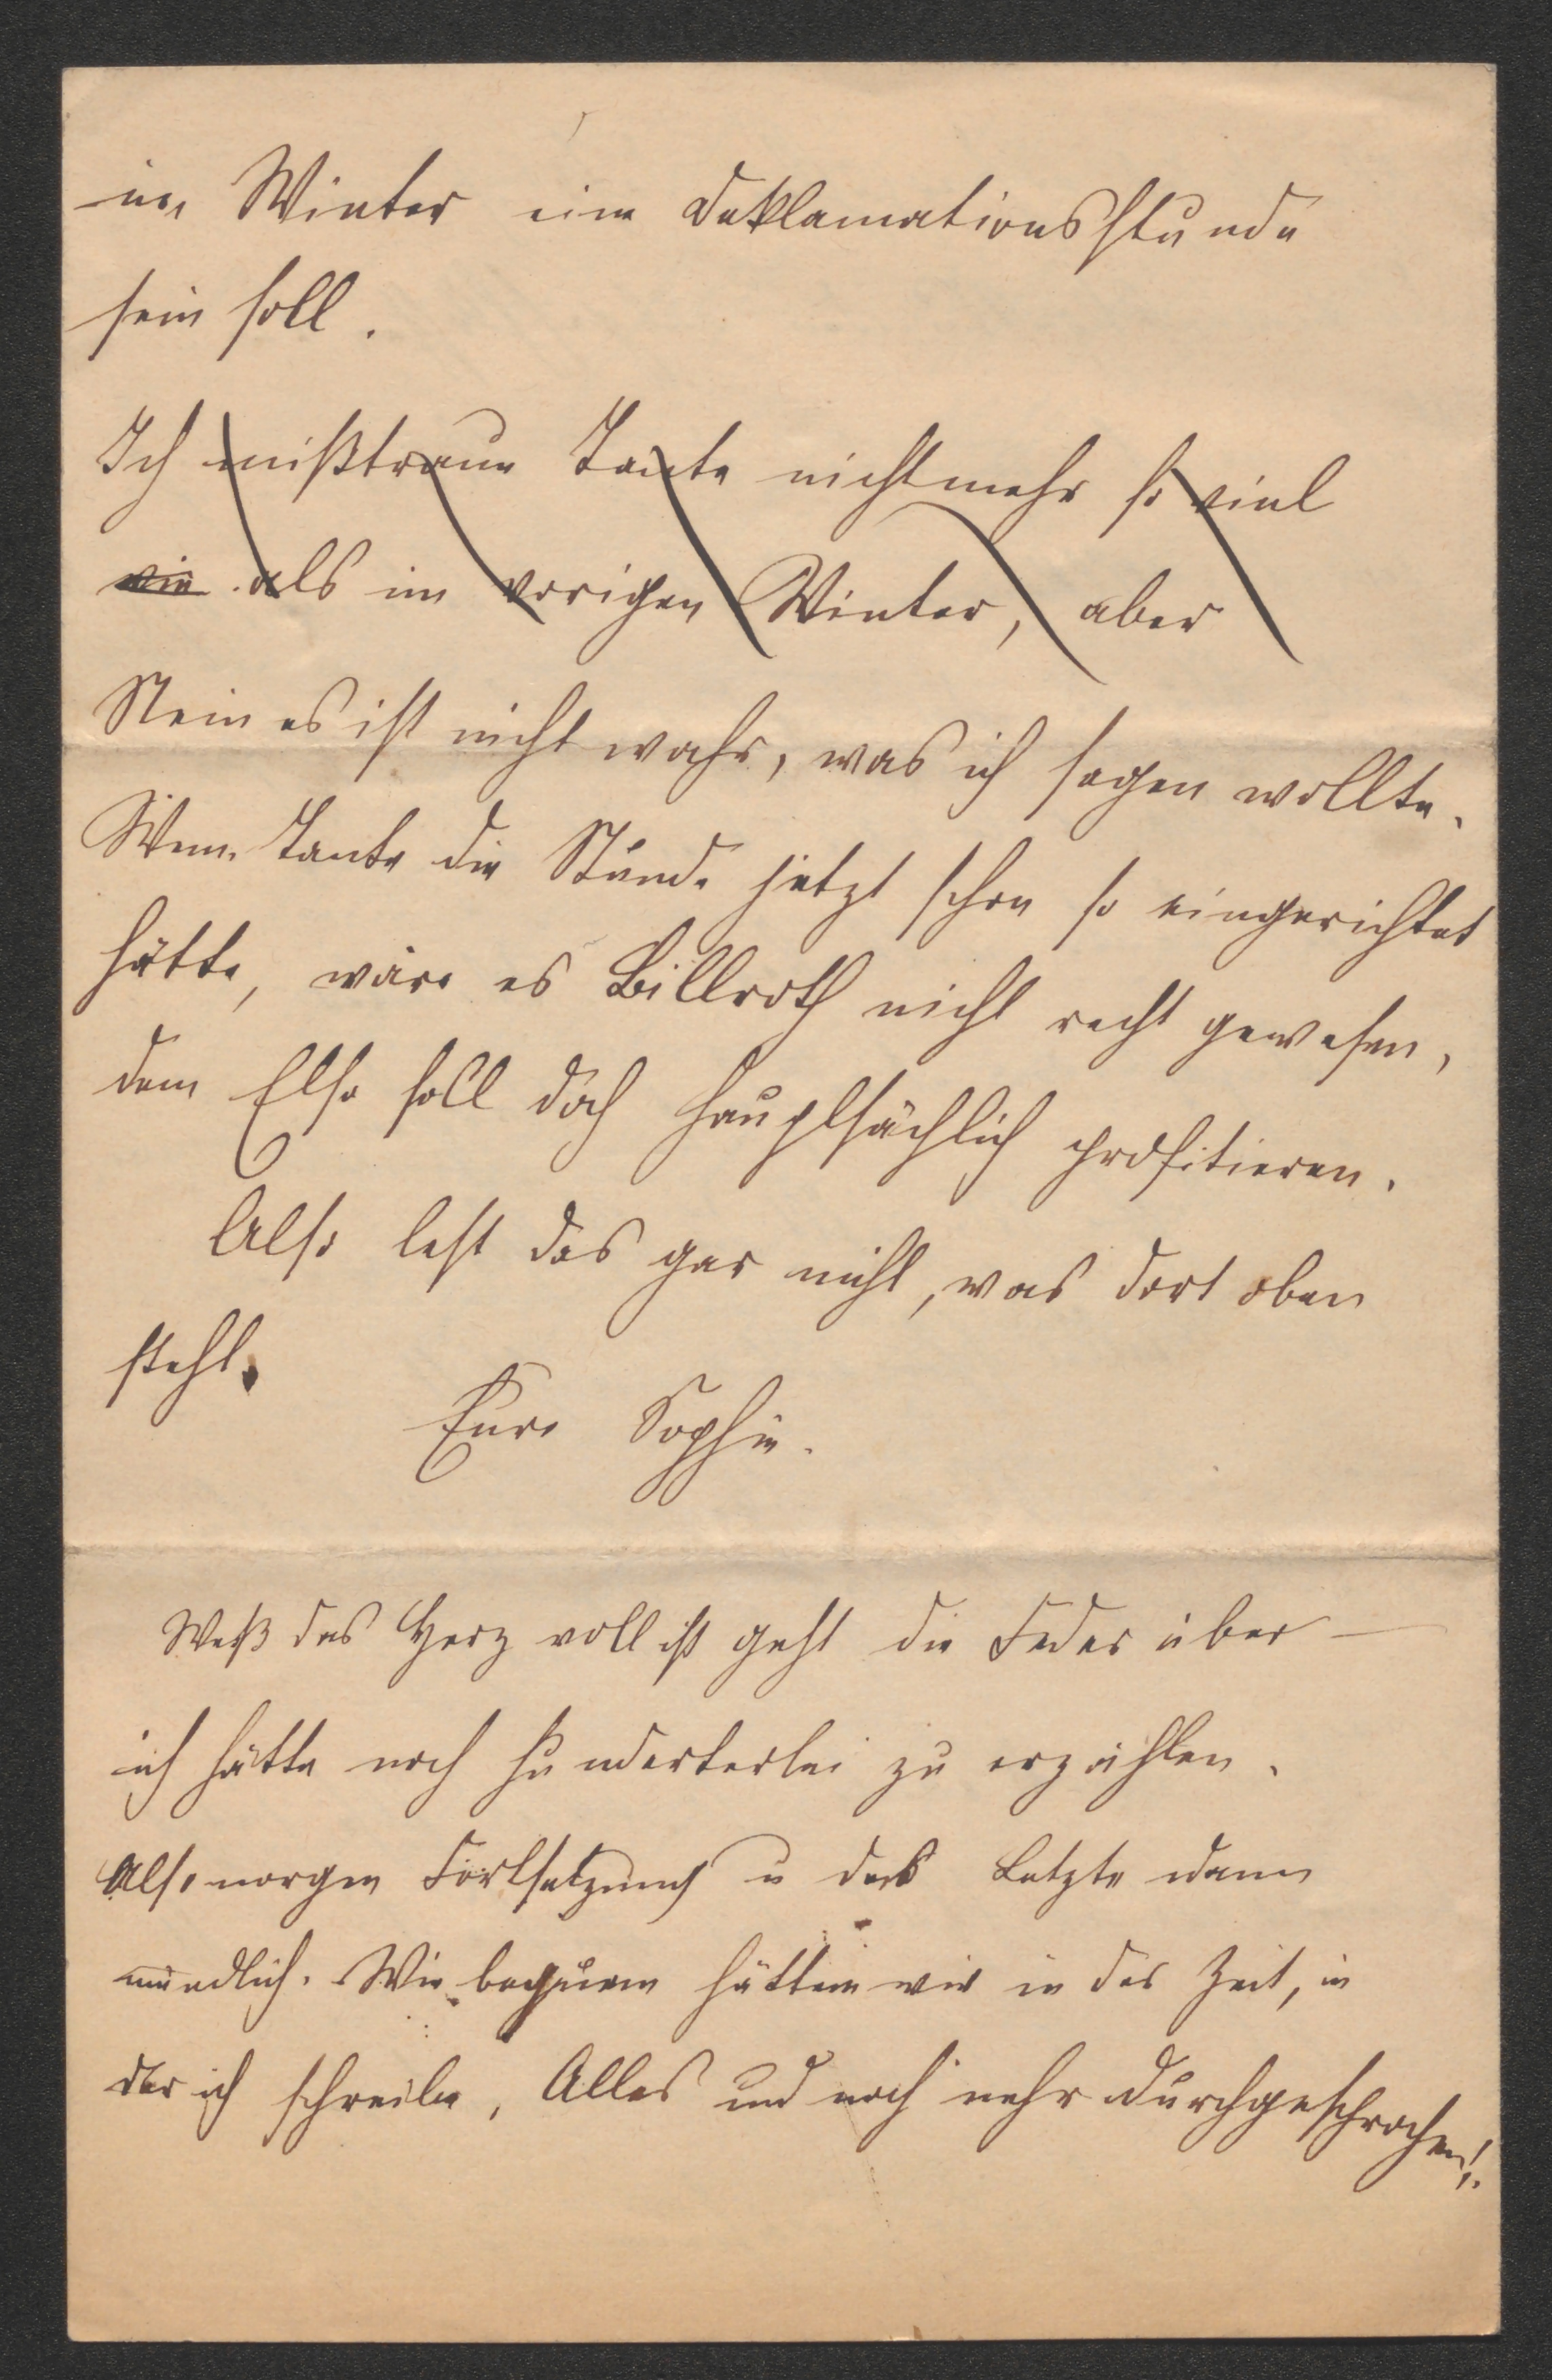 im Winter eine Deklamationsstunde
sein soll.
Ich mißtraue Tante nicht mehr so viel
wie als im vorigen Winter, aber
Nein es ist nicht wahr, was ich sagen wollte.
Wenn Tante die Stunde jetzt schon so eingerichtet
hätte, wäre es Billroth nicht recht gewesen,
denn Else soll doch hauptsächlich profitieren.
Also lest das gar nicht, was dort oben
steht.
Eure Sophie.
Weß das Herz voll ist geht die Feder über —
ich hätte noch hunderterlei zu erzählen.
Also morgen Fortsetzung u das Letzte dann
mündlich. Wie bequem hätten wir in der Zeit, in
der ich schreibe, Alles und noch mehr durchgesprochen!.